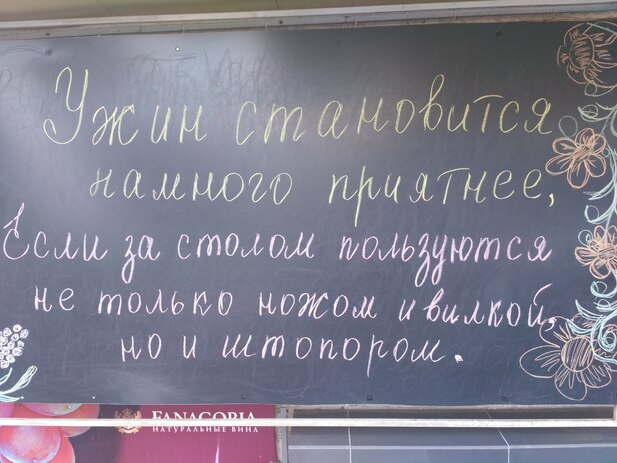 Ужин становится
намного приятнее,
Если за столом пользуются
не только ножом и вилкой,
но и штопором.
FANAGORIA
НАТУРАЛЬНЫЕ ВИНА